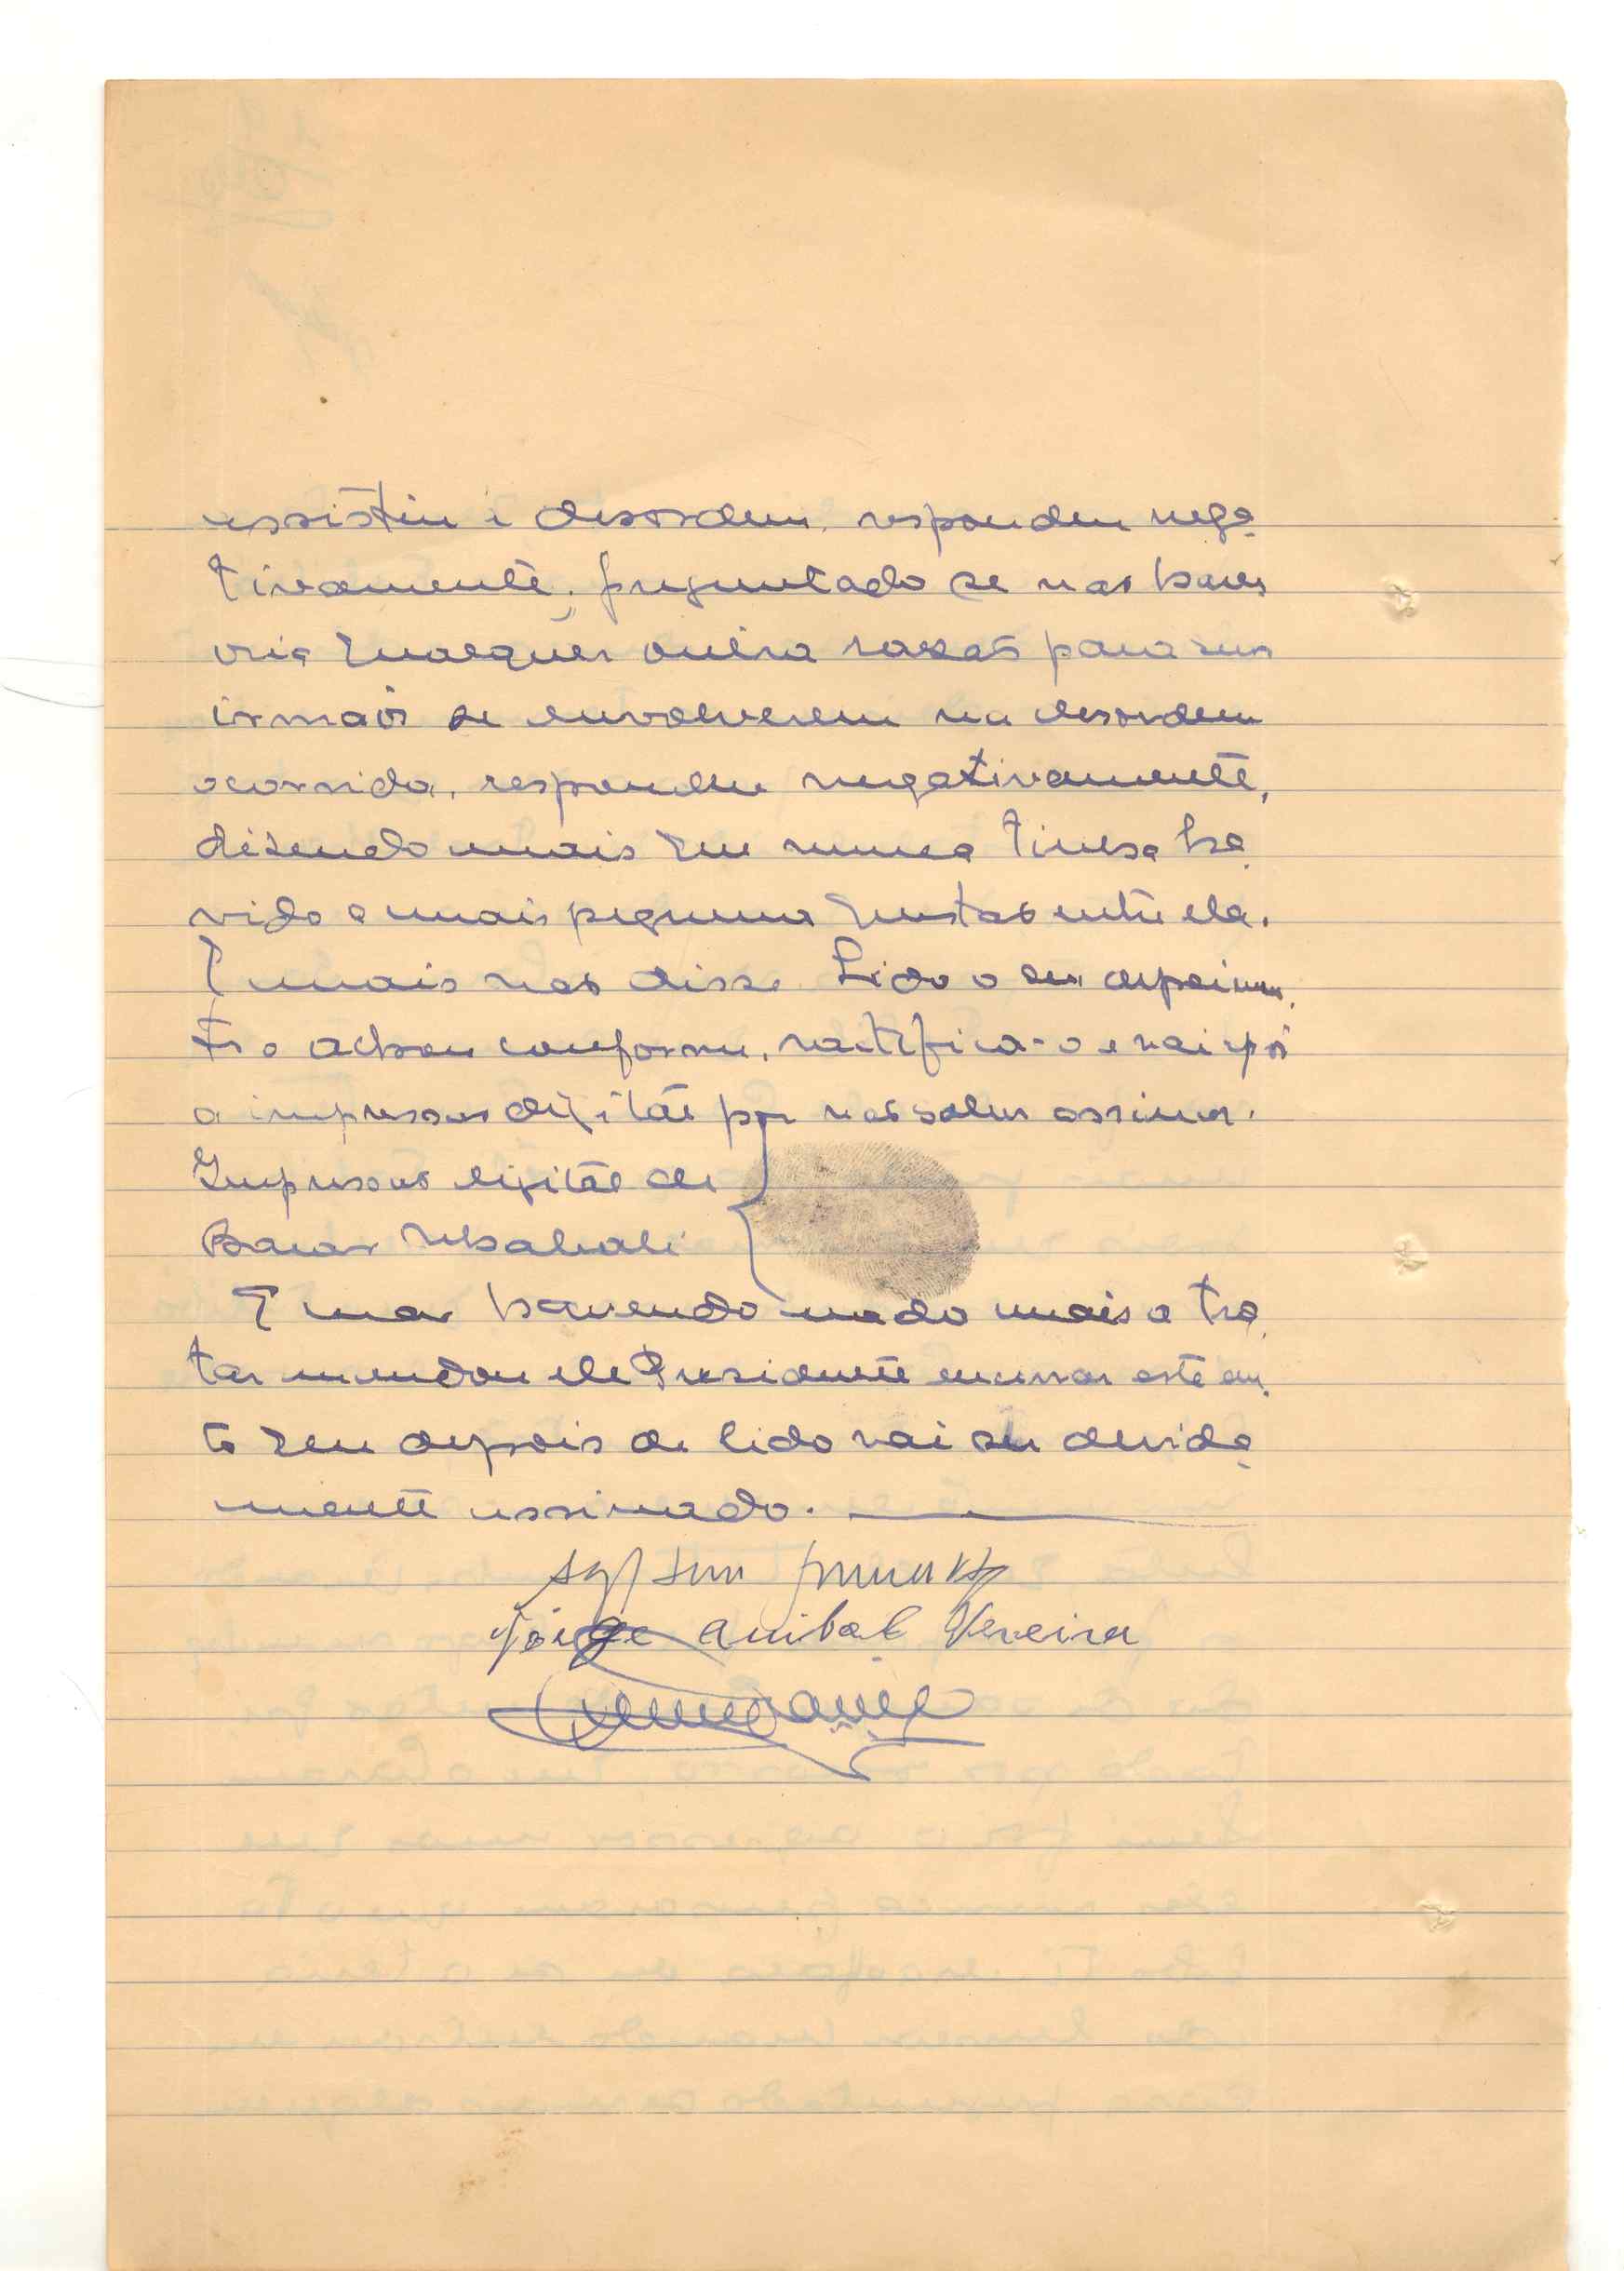 assistiu à desordem, respondeu nega
tivamente; preguntado se não have
ria qualquer outra razão para seus
irmãos se envolverem na desordem
ocorrida, respondeu negativamente,
dizendo mais que nunca tivera ha
vido a mais pequena questão entre ela.
E mais não disse. Lido o seu depoimen
to o achou conforme, ratifica-o e vai apôr
a impressão digital por não saber assinar.
Impressão digital de
E não havendo nada mais a tra
tar mandou ele Presidente encerrar este au
to que depois de lido vai ser devida
mente assinado.
Jorge Anibal Pereira